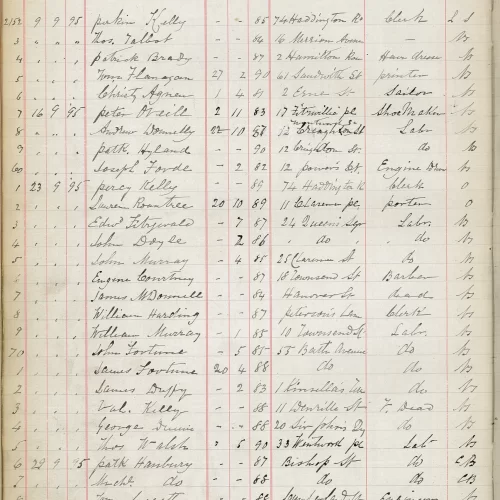 2152 9 9 95 patin Kelly - - 85 74 Haddington Rd Clerk L S
3 " " " Thos Talbot - - 84 16 Merrion Avenue - No
4 . . . patrick Brady - - 87 2 Hamilton Row No
5 . . . Wm Flanagan 27 2 90 61 Sandwith St printer No
6 . . . Christy Agnew 1 4 81 2 Erne St Sailor No
7 16 9 95 peter O'Neill 2 11 83 17 Fitzwillia pl Shoe Maker No
8 . . . Andrew Donnelly 22 10 87 12 Creighton St Labr No
9 . . . patk Hyland - - 90 12 Creighton St do No
60 . . . Joseph Forde - 2 82 12 power's Ct Engine Drvr No
1 23 9 95 percy Kelly - - 89 74 Haddington R Clerk O
2 . . . Lauren Roantree 20 10 89 11 Clarence pl porter O
3 . . . Edwd Fitzgerald - 7 87 24 Queen's Sqr Labr No
4 . . . John Doyle - 2 86 do do No
5 . . . John Murray - 4 85 25 Clarence St No
6 . . . Eugene Courtney - - 87 18 Townsend St Barber No
7 . . . James McDonnell - - 84 Hanover St dead No
8 . . . William Harding - - 87 peterson's Lane Clerk No
9 . . . William Murray - 1 85 10 Townsend St Labr No
70 . . . John Fortune - 5 85 55 Bath Avenue do No
1 . . . James Fortune 20 4 88 do do No
2 . . . James Duffy - 2 83 1 Kinsella's do No
3 . . . Val. Kelly - - 88 11 Denzille St F. Dead No
4 . . . George Dunne - - 88 20 Sir John's Qy do No
5 . . . Thos Walsh 5 90 33 Wentworth pl Labr No
6 29 9 95 patk Hanbury - - 87 Bishop St do CB
7 . . . Michl do - - 88 do do CB
8